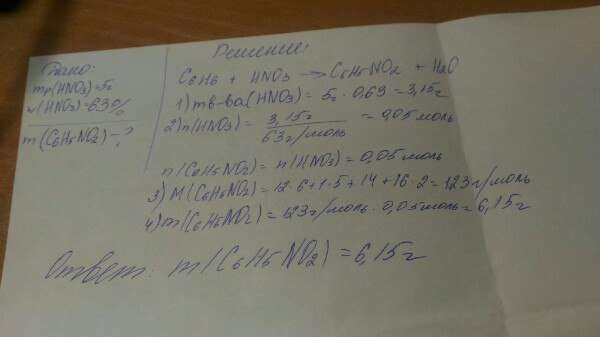 Дано:
mр(HNO3)=5г
w(HNO3)=63%
m(C6H5NO2)-?
Решение:
C6H6 + HNO3 → C6H5NO2 + H2O
1) mв-ва(HNO3) = 5г · 0,63 = 3,15г
2) n(HNO3) = 3,15г / 63г/моль = 0,05 моль
n(C6H5NO2) = n(HNO3) = 0,05 моль
3) M(C6H5NO2) = 12·6+1·5+14+16·2=123г/моль
4) m(C6H5NO2) = 123г/моль · 0,05моль = 6,15г
Ответ: m(C6H5NO2) = 6,15г